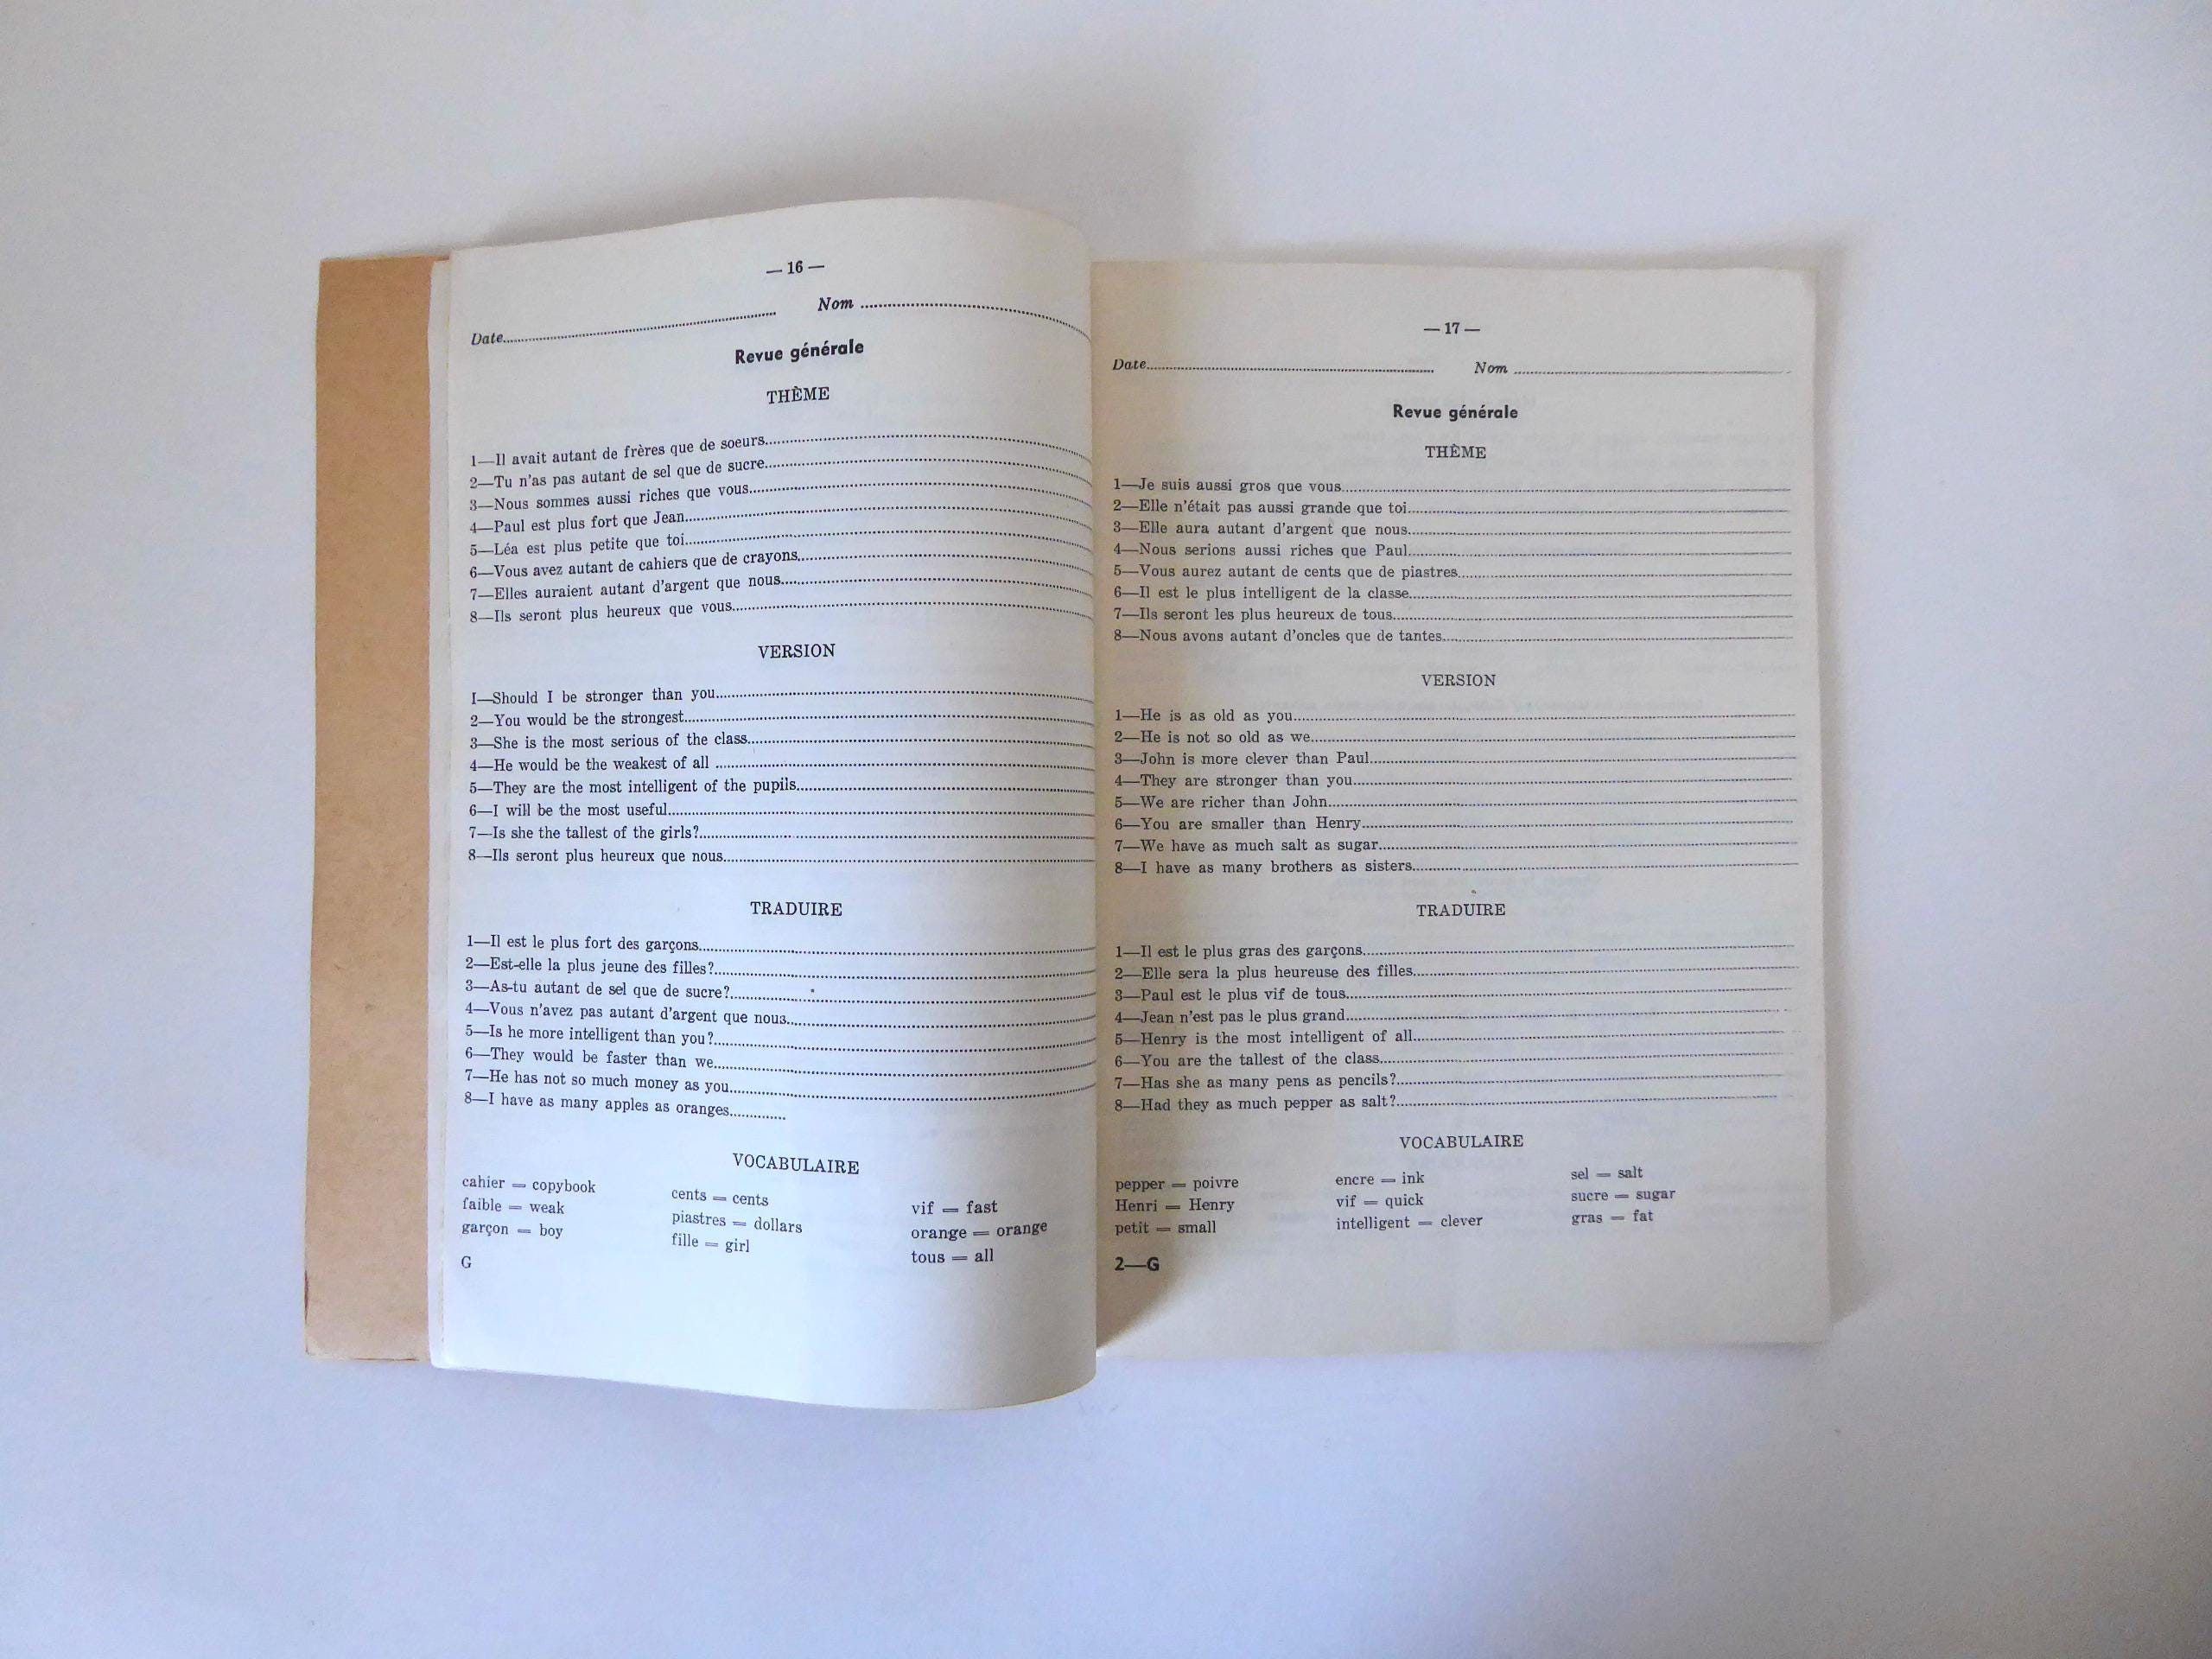 — 16 —
Date.................... Nom ....................
Revue générale
THÈME
1—Il avait autant de frères que de soeurs....................
2—Tu n'as pas autant de sel que de sucre....................
3—Nous sommes aussi riches que vous....................
4—Paul est plus fort que Jean....................
5—Léa est plus petite que toi....................
6—Vous avez autant de cahiers que de crayons....................
7—Elles auraient autant d'argent que nous....................
8—Ils seront plus heureux que vous....................
VERSION
I—Should I be stronger than you....................
2—You would be the strongest....................
3—She is the most serious of the class....................
4—He would be the weakest of all ....................
5—They are the most intelligent of the pupils....................
6—I will be the most useful....................
7—Is she the tallest of the girls?....................
8—Ils seront plus heureux que nous....................
TRADUIRE
1—Il est le plus fort des garçons....................
2—Est-elle la plus jeune des filles?....................
3—As-tu autant de sel que de sucre?....................
4—Vous n'avez pas autant d'argent que nous....................
5—Is he more intelligent than you?....................
6—They would be faster than we....................
7—He has not so much money as you....................
8—I have as many apples as oranges.............
VOCABULAIRE
cahier = copybook cents = cents vif = fast
faible = weak piastres = dollars orange = orange
garçon = boy fille = girl tous = all
G
— 17 —
Date.................... Nom ....................
Revue générale
THÈME
1—Je suis aussi gros que vous....................
2—Elle n'était pas aussi grande que toi....................
3—Elle aura autant d'argent que nous....................
4—Nous serions aussi riches que Paul....................
5—Vous aurez autant de cents que de piastres....................
6—Il est le plus intelligent de la classe....................
7—Ils seront les plus heureux de tous....................
8—Nous avons autant d'oncles que de tantes....................
VERSION
1—He is as old as you....................
2—He is not so old as we....................
3—John is more clever than Paul....................
4—They are stronger than you....................
5—We are richer than John....................
6—You are smaller than Henry....................
7—We have as much salt as sugar....................
8—I have as many brothers as sisters....................
TRADUIRE
1—Il est le plus gras des garçons....................
2—Elle sera la plus heureuse des filles....................
3—Paul est le plus vif de tous....................
4—Jean n'est pas le plus grand....................
5—Henry is the most intelligent of all....................
6—You are the tallest of the class....................
7—Has she as many pens as pencils?....................
8—Had they as much pepper as salt?....................
VOCABULAIRE
pepper = poivre encre = ink sel = salt
Henri = Henry vif = quick sucre = sugar
petit = small intelligent = clever gras = fat
2—G